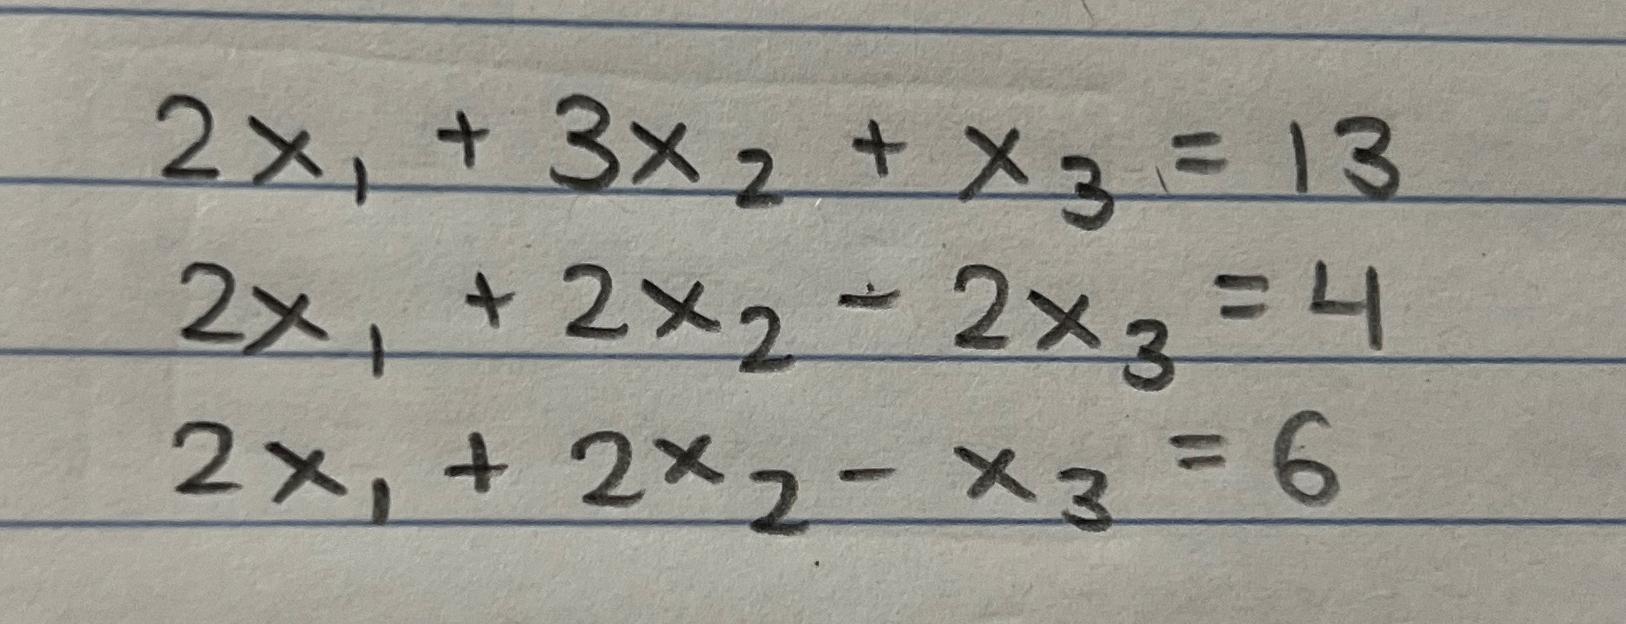 2x₁ + 3x₂ + x₃ = 13
2x₁ + 2x₂ - 2x₃ = 4
2x₁ + 2x₂ - x₃ = 6